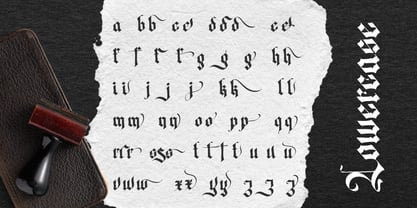 a bb cc ddd ee
f f f f g g g hh
ii j j j kk ll
mm nn oo pp qq
rrr sss tttt u u u
vww xx yy z z z
Lowercase